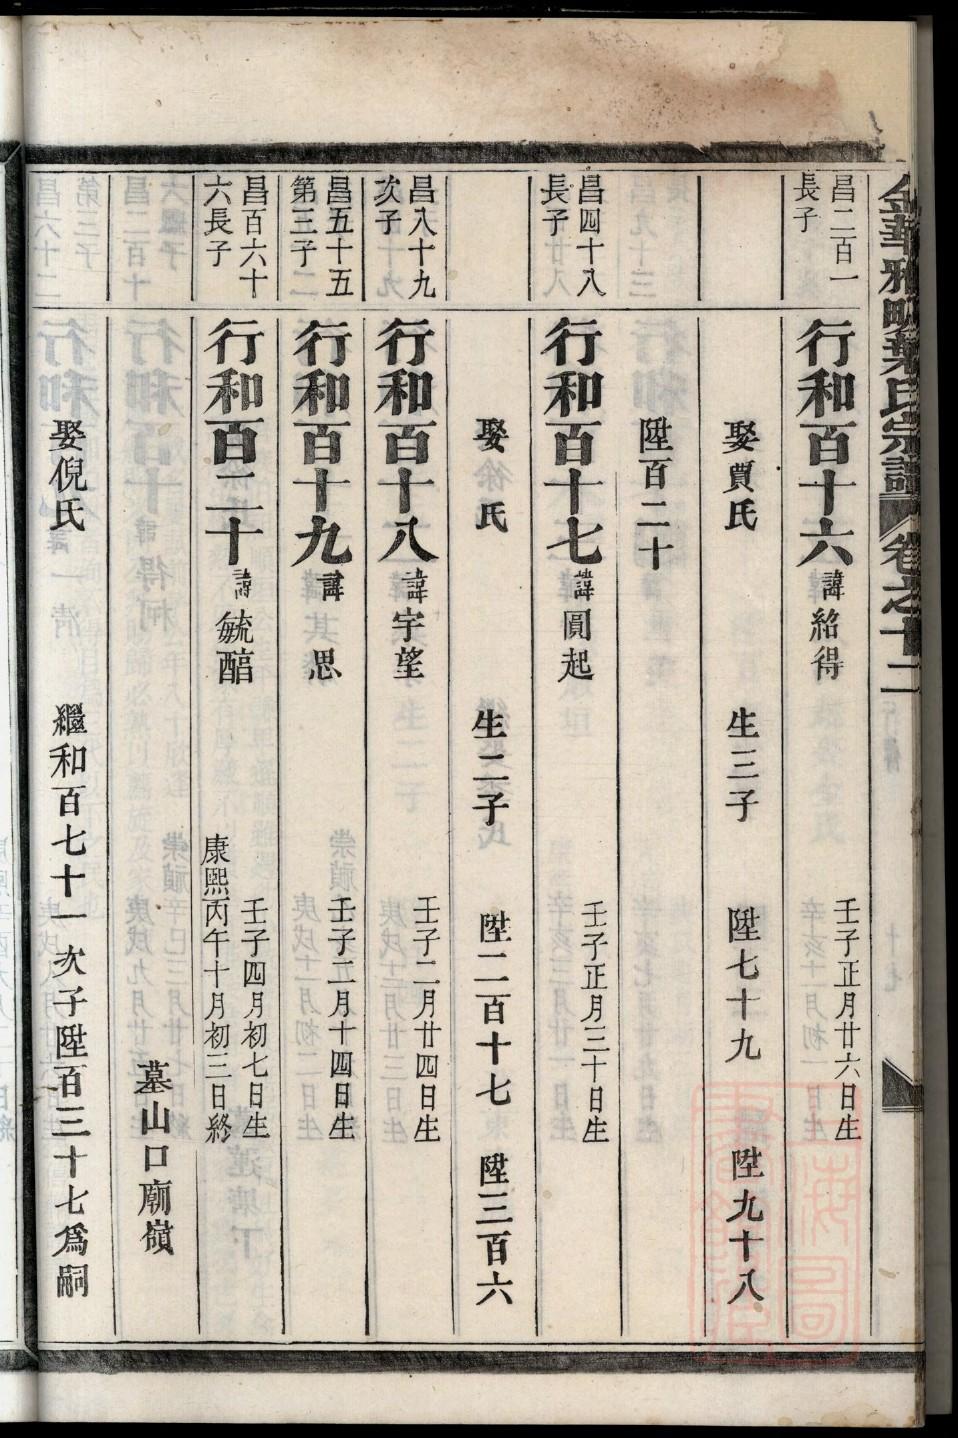 金華雅畈葉氏宗譜 卷之十二
昌二百一
長子
行和百十六 諱紹得 壬子正月廿六日生
娶賈氏 生三子 陞七十九 陞九十八
陞百二十
昌四十八
長子
行和百十七 諱圓起 壬子正月三十日生
娶徐氏 生二子 陞二百十七 陞三百六
昌八十九
次子
行和百十八 諱宇望 壬子二月廿四日生
昌五十五
第三子
行和百十九 諱思 壬子五月十四日生
昌百六十
六長子
行和百二十 諱毓醅 壬子四月初七日生
康熙丙午十月初三日終
墓山口廟嶺
娶倪氏 繼和百七十一次子陞百三十七爲嗣